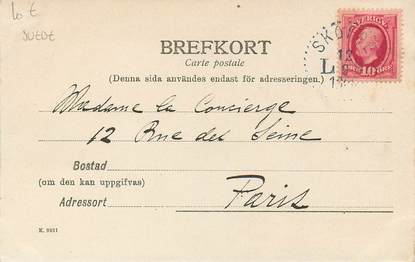 10 €
SUEDE
BREFKORT
Carte postale
(Denna sida användes endast för adresseringen.)
SVERIGE
10 ÖRE
SKÖ
12
L
Madame la Concierge
12 Rue de Seine
Bostad
(om den kan uppgifvas)
Paris
Adressort